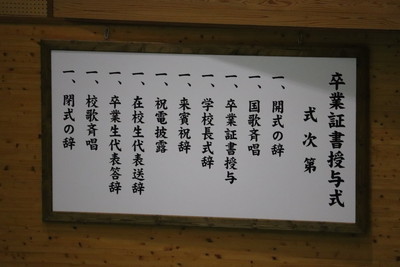 卒業証書授与式
式次第
一、開式の辞
一、国歌斉唱
一、卒業証書授与
一、学校長式辞
一、来賓祝辞
一、祝電披露
一、在校生代表送辞
一、卒業生代表答辞
一、校歌斉唱
一、閉式の辞